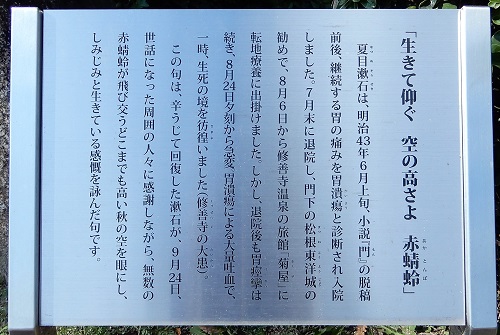 「生きて仰ぐ 空の高さよ 赤蜻蛉」
夏目漱石は、明治43年6月上旬、小説『門』の脱稿
前後、継続する胃の痛みを胃潰瘍と診断され入院
しました。7月末に退院し、門下の松根東洋城の
勧めで、8月6日から修善寺温泉の旅館「菊屋」に
転地療養に出掛けました。しかし、退院後も胃痙攣は
続き、8月24日夕刻から急変、胃潰瘍による大量吐血で、
一時、生死の境を彷徨いました(修善寺の大患)。
この句は、辛うじて回復した漱石が、9月24日、
世話になった周囲の人々に感謝しながら、無数の
赤蜻蛉が飛び交うどこまでも高い秋の空を眼にし、
しみじみと生きている感慨を詠んだ句です。